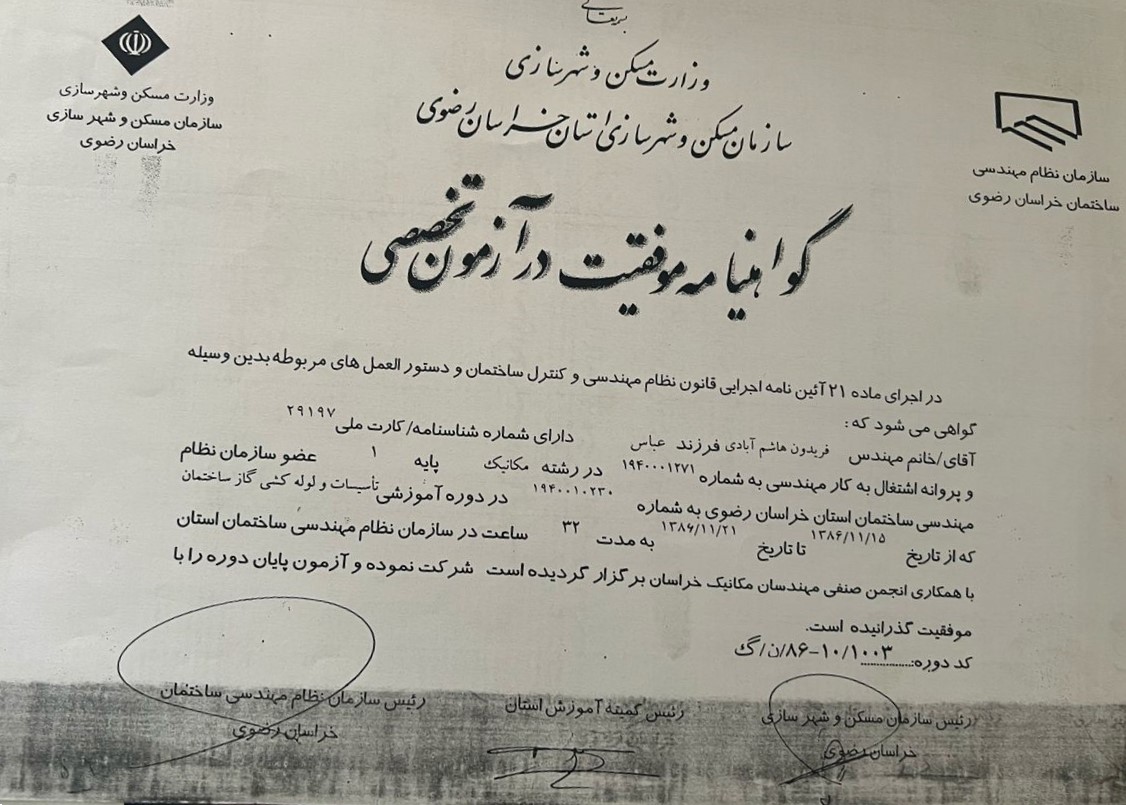 وزارت مسکن و شهرسازی
سازمان مسکن و شهرسازی استان خراسان رضوی
وزارت مسکن وشهرسازی
سازمان مسکن و شهر سازی
خراسان رضوی
سازمان نظام مهندسی
ساختمان خراسان رضوی
گواهینامه موفقیت در آزمون تخصصی
در اجرای ماده ۲۱ آئین نامه اجرایی قانون نظام مهندسی و کنترل ساختمان و دستور العمل های مربوطه بدین وسیله
گواهی می شود که :
آقای/خانم مهندس فریدون هاشم آبادی فرزند عباس دارای شماره شناسنامه/کارت ملی ۲۹۱۹۷
و پروانه اشتغال به کار مهندسی به شماره ۱۹۴۰۰۰۱۲۷۱ در رشته مکانیک پایه ۱ عضو سازمان نظام
مهندسی ساختمان استان خراسان رضوی به شماره ۱۹۴۰۰۱۰۲۳۰ در دوره آموزشی تأسیسات و لوله کشی گاز ساختمان
که از تاریخ ۱۳۸۶/۱۱/۱۵ تا تاریخ ۱۳۸۶/۱۱/۲۱ به مدت ۳۲ ساعت در سازمان نظام مهندسی ساختمان استان
با همکاری انجمن صنفی مهندسان مکانیک خراسان برگزار گردیده است شرکت نموده و آزمون پایان دوره را با
موفقیت گذرانیده است.
کد دوره: ۸۶-۱۰/۱۰۰۳/ن/گ
رئیس سازمان مسکن و شهر سازی
خراسان رضوی
رئیس کمیته آموزش استان
رئیس سازمان نظام مهندسی ساختمان
خراسان رضوی